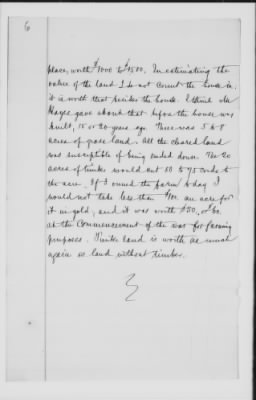 6
place, worth $1000 to $1500. In estimating the
value of the land I do not count the house in,
it is worth that besides the house. I think Mr
Hayes gave about that before the house was
built, 15 or 20 years ago. There was 5 to 8
acres of grass land. All the cleared land
was susceptible of being seeded down. The 20
acres of timber would cut 50 to 75 cords to
the acre. If I owned the farm to-day I
would not take less than $100 an acre for
it in gold, and it was worth $50, or $60.
at the Commencement of the war for farming
purposes. Timber land is worth as much
again as land without timber.